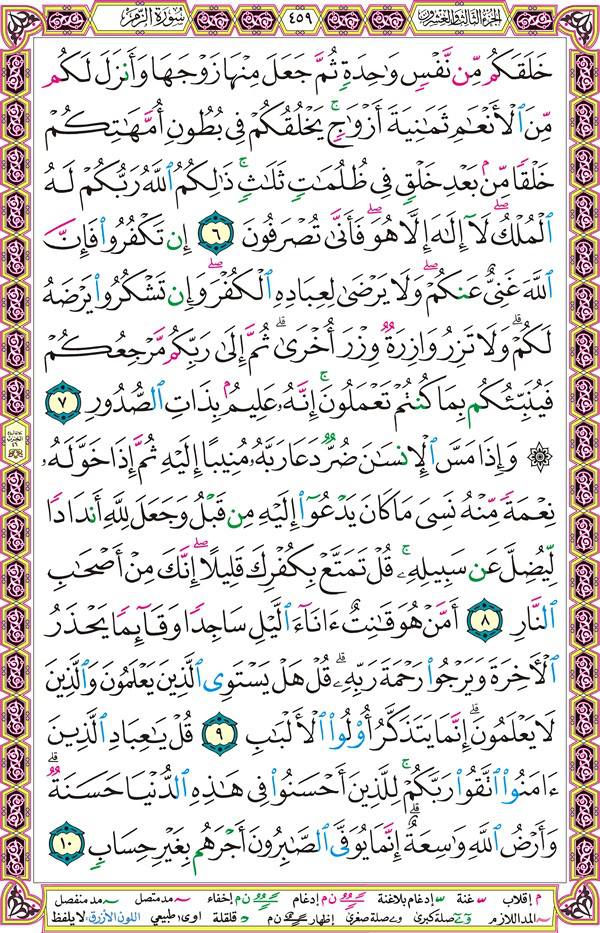 الجزء الثالث والعشرون ٤٥٩ سورة الزمر
خَلَقَكُم مِّن نَّفْسٍ وَٰحِدَةٍ ثُمَّ جَعَلَ مِنْهَا زَوْجَهَا وَأَنزَلَ لَكُم
مِّنَ ٱلْأَنْعَٰمِ ثَمَٰنِيَةَ أَزْوَٰجٍ ۚ يَخْلُقُكُمْ فِى بُطُونِ أُمَّهَٰتِكُمْ
خَلْقًا مِّنۢ بَعْدِ خَلْقٍ فِى ظُلُمَٰتٍ ثَلَٰثٍ ۚ ذَٰلِكُمُ ٱللَّهُ رَبُّكُمْ لَهُ
ٱلْمُلْكُ ۖ لَآ إِلَٰهَ إِلَّا هُوَ ۖ فَأَنَّىٰ تُصْرَفُونَ ٦ إِن تَكْفُرُوا۟ فَإِنَّ
ٱللَّهَ غَنِىٌّ عَنكُمْ ۖ وَلَا يَرْضَىٰ لِعِبَادِهِ ٱلْكُفْرَ ۖ وَإِن تَشْكُرُوا۟ يَرْضَهُ
لَكُمْ ۗ وَلَا تَزِرُ وَازِرَةٌ وِزْرَ أُخْرَىٰ ۗ ثُمَّ إِلَىٰ رَبِّكُم مَّرْجِعُكُمْ
فَيُنَبِّئُكُم بِمَا كُنتُمْ تَعْمَلُونَ ۚ إِنَّهُۥ عَلِيمٌۢ بِذَاتِ ٱلصُّدُورِ ٧
۞ وَإِذَا مَسَّ ٱلْإِنسَٰنَ ضُرٌّ دَعَا رَبَّهُۥ مُنِيبًا إِلَيْهِ ثُمَّ إِذَا خَوَّلَهُۥ
نِعْمَةً مِّنْهُ نَسِىَ مَا كَانَ يَدْعُوٓا۟ إِلَيْهِ مِن قَبْلُ وَجَعَلَ لِلَّهِ أَندَادًا
لِّيُضِلَّ عَن سَبِيلِهِۦ ۚ قُلْ تَمَتَّعْ بِكُفْرِكَ قَلِيلًا ۖ إِنَّكَ مِنْ أَصْحَٰبِ
ٱلنَّارِ ٨ أَمَّنْ هُوَ قَٰنِتٌ ءَانَآءَ ٱلَّيْلِ سَاجِدًا وَقَآئِمًا يَحْذَرُ
ٱلْءَاخِرَةَ وَيَرْجُوا۟ رَحْمَةَ رَبِّهِۦ ۗ قُلْ هَلْ يَسْتَوِى ٱلَّذِينَ يَعْلَمُونَ وَٱلَّذِينَ
لَا يَعْلَمُونَ ۗ إِنَّمَا يَتَذَكَّرُ أُو۟لُوا۟ ٱلْأَلْبَٰبِ ٩ قُلْ يَٰعِبَادِ ٱلَّذِينَ
ءَامَنُوا۟ ٱتَّقُوا۟ رَبَّكُمْ ۚ لِلَّذِينَ أَحْسَنُوا۟ فِى هَٰذِهِ ٱلدُّنْيَا حَسَنَةٌ ۗ
وَأَرْضُ ٱللَّهِ وَٰسِعَةٌ ۗ إِنَّمَا يُوَفَّى ٱلصَّٰبِرُونَ أَجْرَهُم بِغَيْرِ حِسَابٍ ١٠
م إقلاب س غنة س إدغام بلاغنة ن م إدغام ن م إخفاء ~ مد متصل ~ مد منفصل
~ المد اللازم و ے صلة كبرى و ے صلة صغرى إظهار ن م د قلقلة اوى طبيعي اللون الأزرق لا يلفظ